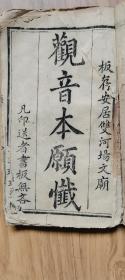 板存安居雙河場文廟
觀音本願懺
凡印送者書板無吝